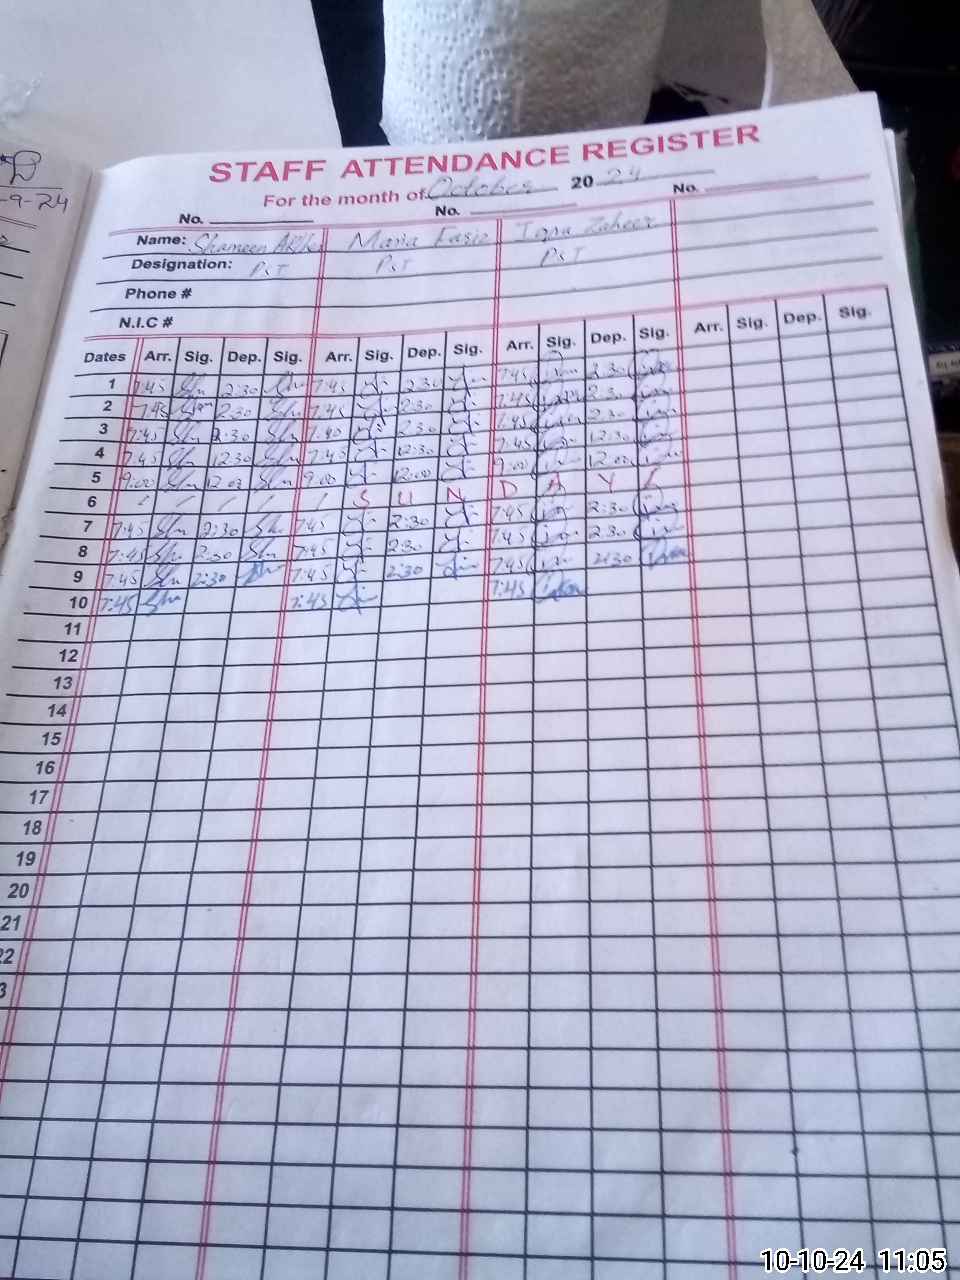 -9-24
STAFF ATTENDANCE REGISTER
For the month of October 2024
No. No. No.
Name: Shameen Maria Iqra Zaheer
Designation: PST PST PST
Phone #
N.I.C #
Dates Arr. Sig. Dep. Sig. Arr. Sig. Dep. Sig. Arr. Sig. Dep. Sig. Arr. Sig. Dep. Sig.
1 7:45 2:30 7:45 2:30 7:45 2:30
2 7:45 2:30 7:45 2:30 7:45 2:30
3 7:45 2:30 7:40 2:30 7:45 2:30
4 7:45 12:30 7:45 12:30 7:45 12:30
5 9:00 12:00 9:00 12:00 9:00 12:00
6 S U N D A Y
7 7:45 2:30 7:45 2:30 7:45 2:30
8 7:45 2:30 7:45 2:30 7:45 2:30
9 7:45 2:30 7:45 2:30 7:45 2:30
10 7:45 7:45 7:45
11
12
13
14
15
16
17
18
19
20
21
22
3
10-10-24 11:05